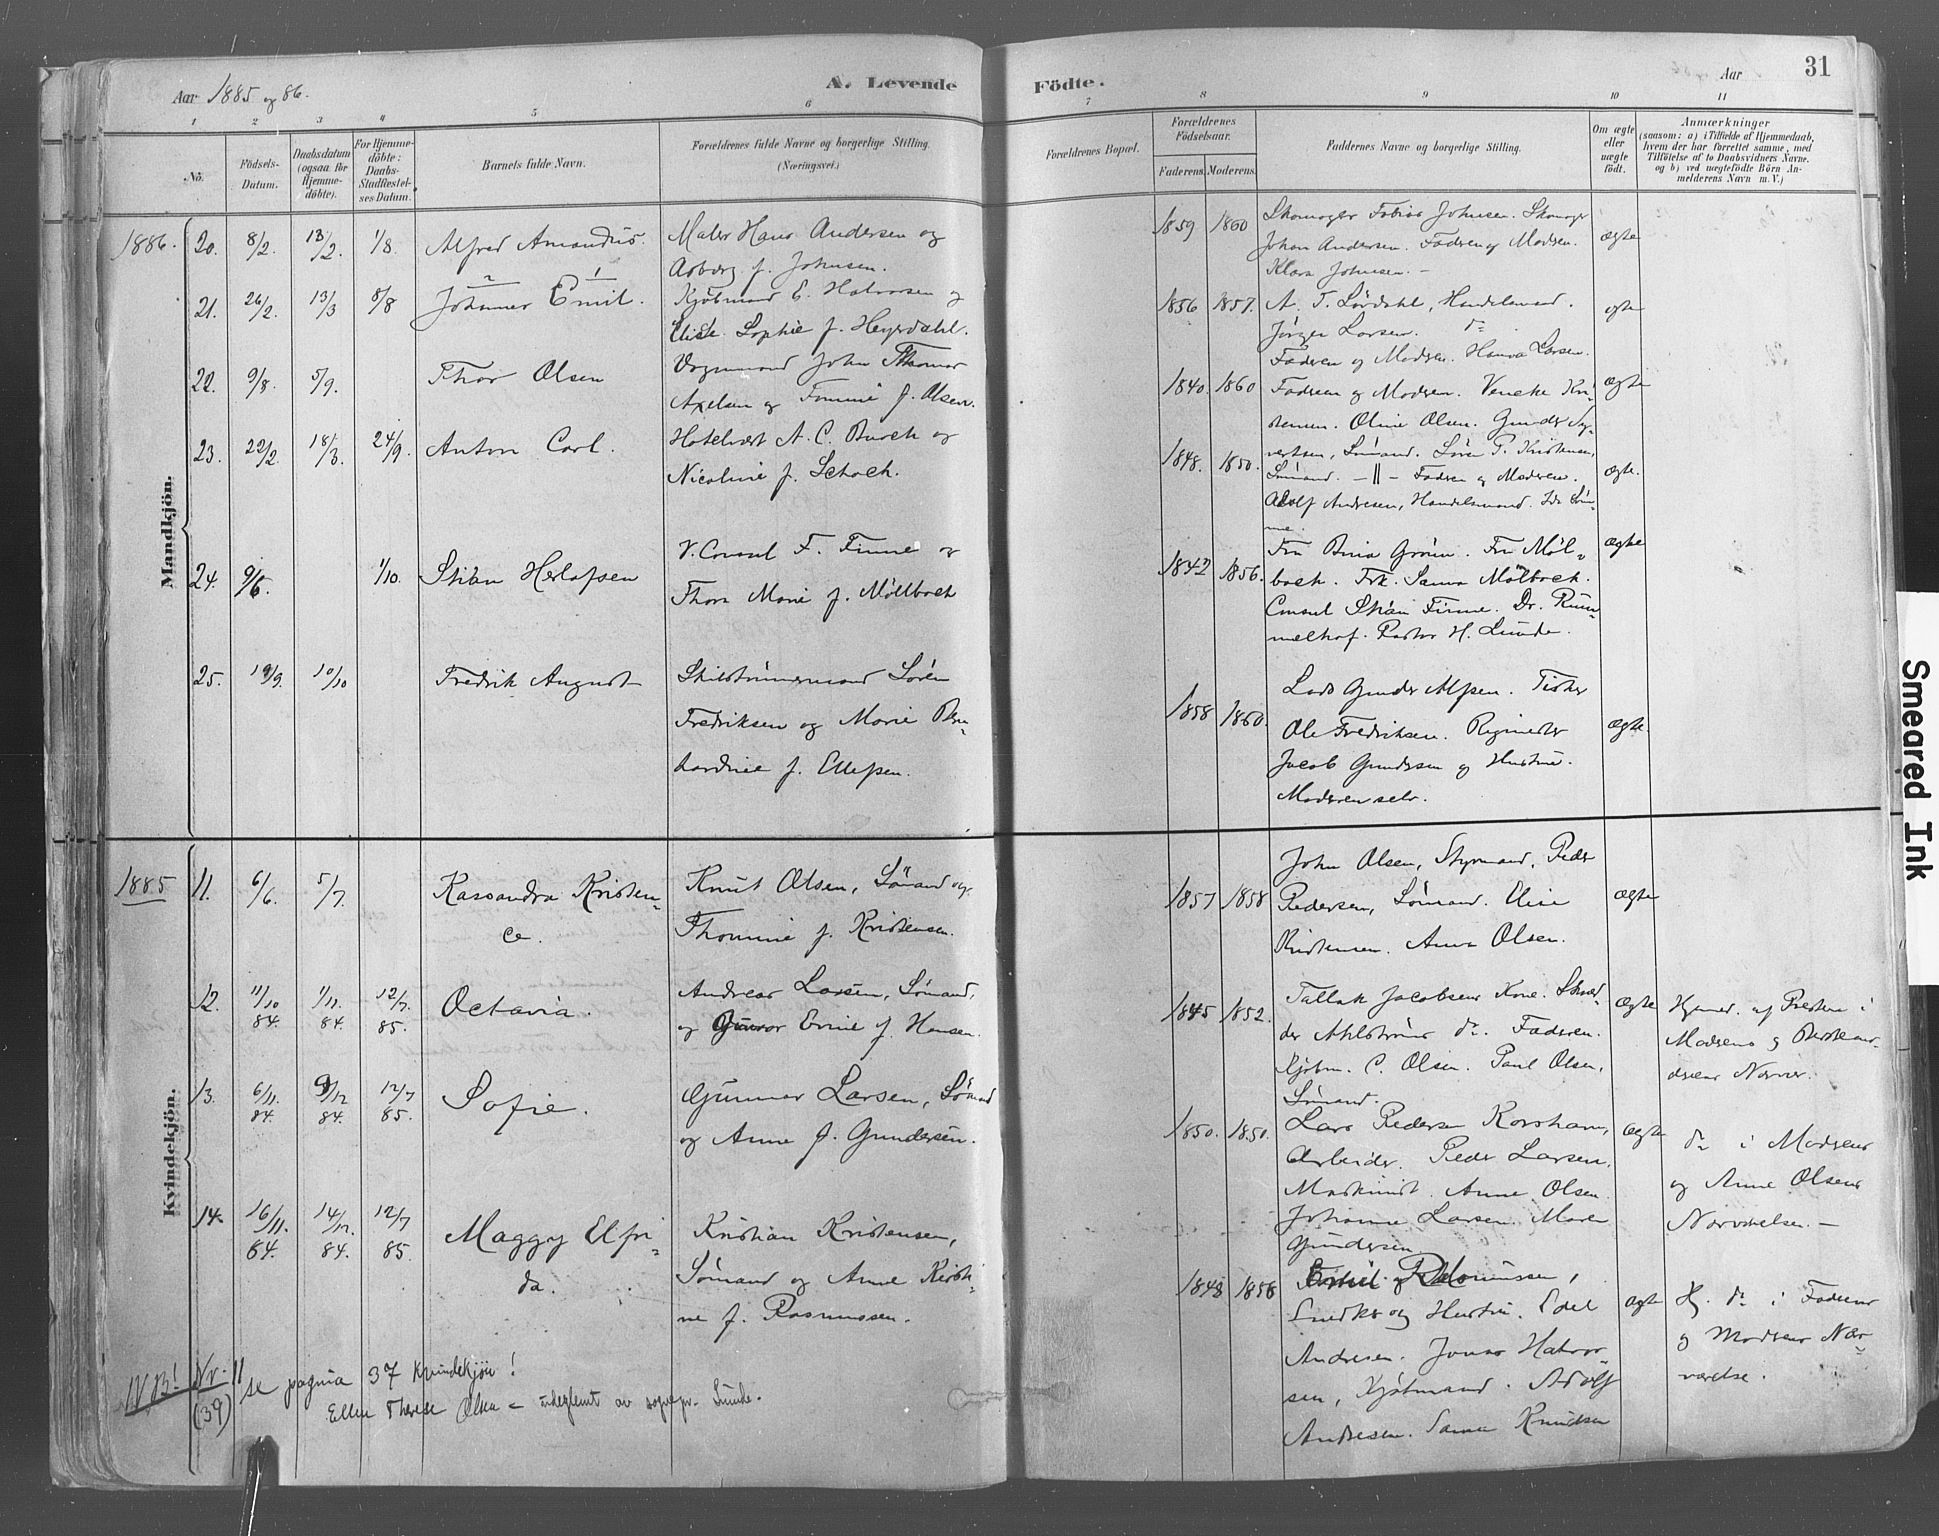 Aar 1885 og 86.
A. Levende Födte.
Aar
31
1 2 3 4 5 6 7 8 9 10 11
No.
Födsels-Datum.
Daabsdatum (ogsaa for Hjemme-döbte).
For Hjemme-döbte: Daabs-Stadfæstel-ses-Datum.
Barnets fulde Navn.
Forældrenes fulde Navne og borgerlige Stilling. (Næringsvei.)
Forældrenes Bopæl.
Forældrenes Födselsaar.
Faderens. Moderens.
Faddernes Navne og borgerlige Stilling.
Om ægte eller uægte födt.
Anmærkninger
(saasom: a) i Tilfælde af Hjemmedaab, hvem der har forrettet samme, med Tilföielse af to Daabsvidners Navne. og b) ved uægtefödte Börn An-melderens Navn m. V.)
Mandkjön.
1886. 20. 8/2 13/2 1/8 Alfred Amandus.
Maler Hans Andersen og
Asborg f. Johnsen.
1859 1860
Skomager Tobias Johnsen. Skomager
Johan Andersen. Faderen og Moderen.
Klara Johnsen. -
ægte
21. 26/2 13/3 8/8 Johannes Emil.
Kjøbmand E. Halvorsen og
Elise Sophie f. Heyerdahl.
1856 1857.
A. T. Lördahl, Handelsmand.
Jörgen Larsen. do
Faderen og Moderen. Hanna Larsen.
ægte
22. 9/8 5/9. Thor Olsen
Vognmand John Thomas
Axelsen og Tomine f. Olsen.
1840. 1860
Faderen og Moderen. Veneke Kri-
stensen. Oline Olsen. Gunder Sy-
vertsen, Sömand. Sören P. Kristensen,
ægte
23. 22/2 18/3. 24/9. Anton Carl.
Hotelvært A. C. Burch og
Nicoline f. Schoch.
1848. 1850.
Sömand. -||- Faderen og Moderen.
Adolf Andresen, Handelsmand. Ida
ægte.
24. 9/6. 1/10. Stian Herlofsen
V. Consul F. Finne og
Thora Marie f. Möllbach
1842 1856.
Fru Grönn. Fru Möl-
bach. Frk. Sanna Mölbach.
Consul Stian Finne. Dr. Rum-
melhof. Pastor H. Lunde.
ægte
25. 19/9. 10/10 Fredrik August
Skibstömmermand Sören
Fredriksen og Marie Ber-
nardine f. Ellefsen.
1858 1860.
Lods Gunder Alfsen. Fisker
Ole Fredriksen.
Jacob Gundersen og Hustru.
Moderen selv.
ægte.
Kvindekjön.
1885 11. 6/6. 5/7. Kassandra Kristen-
ce.
Knut Olsen, Sömand og
Thomine f. Kristensen.
1857 1858
John Olsen, Styrmand, Peder
Pedersen, Sömand. Elise
Kristensen. Anna Olsen.
ægte
12. 11/10 84. 1/11. 84. 12/7. 85. Octavia.
Andreas Larsen, Sömand,
og Gunvor Emie f. Hansen.
1845 1852.
Tallak Jacobsens Kone. Skræd-
der Ahlströms do. Faderen.
Kjøbm. C. Olsen. Paul Olsen,
Sömand.
ægte
Hjemmed. af Presten i
Moderens og
Nærvær.
13. 6/11. 84. 9/12 84. 12/7 85. Sofie.
Gunnar Larsen, Sömand
og Anne f. Gundersen.
1850. 1850.
Lars Pedersen Korshavn,
Arbeider. Peder Larsen,
Maskinist. Anne Olsen.
Johanne Larsen. Maren
Gundersen.
ægte
do i Moderens
og Anne Olsens
Nærværelse. -
14. 16/11. 84. 14/12. 84. 12/7 85. Maggy Elfri-
da.
Kristian Kristensen,
Sömand og Anne Kirsti-
ne f. Rasmussen.
1848 1856
Emil Rasmussen,
Snedker og Hustru. Edel
Andresen. Jonas Halvor-
sen, Kjøbmand. Adolf
Andresen. Sanna Knudsen
ægte
Hj. do i Faderens
og Moderens Nær-
værelse.
NB! Nr. 11 se pagina 37 kvindekjön!
(39) Ellen Therese Olsen - uteglemt av sognepr. Lunde.
Smeared Ink